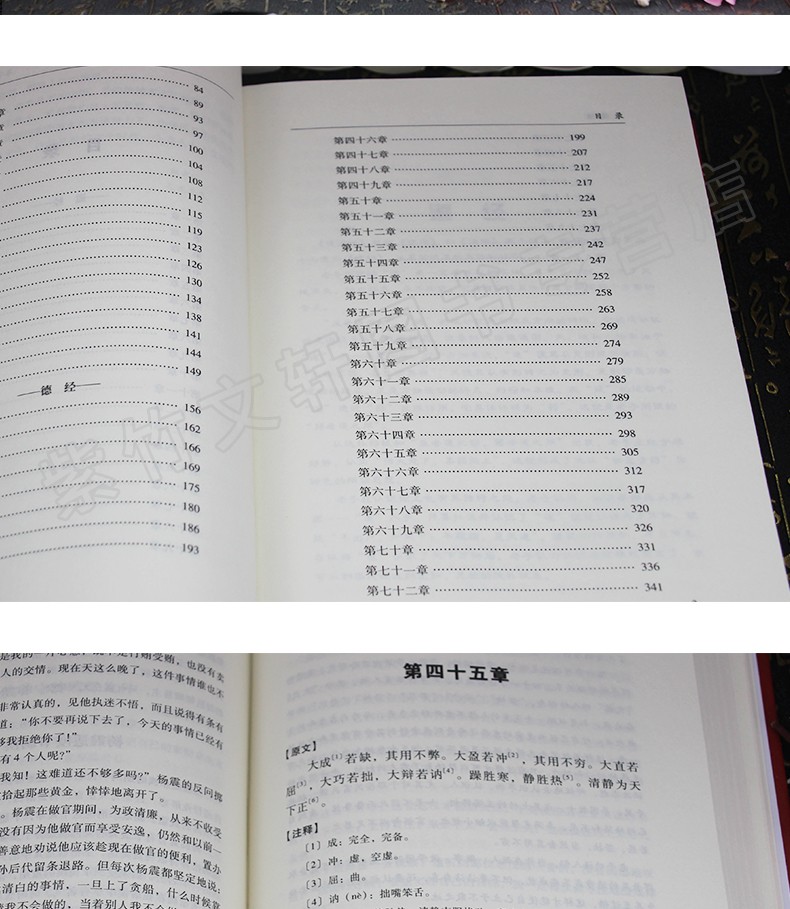 84
89
93
97
100
104
108
112
115
119
123
126
130
134
138
141
144
149
德 经
156
162
166
169
175
180
186
193
目 录
第四十六章 199
第四十七章 207
第四十八章 212
第四十九章 217
第五十章 224
第五十一章 231
第五十二章 237
第五十三章 242
第五十四章 247
第五十五章 252
第五十六章 258
第五十七章 263
第五十八章 269
第五十九章 274
第六十章 279
第六十一章 285
第六十二章 289
第六十三章 293
第六十四章 298
第六十五章 305
第六十六章 312
第六十七章 317
第六十八章 320
第六十九章 326
第七十章 331
第七十一章 336
第七十二章 341
紫竹文轩图书专营店
人的交情。现在天这么晚了，这件事情谁也不
非常认真的，见他执迷不悟，而且说得有条有
道：“你不要再说下去了，今天的事情已经有
我拒绝你了！”
有4个人呢？”
我知！这难道还不够多吗？”杨震的反问掷
拾起那些黄金，悻悻地离开了。
。杨震在做官期间，为政清廉，从来不收受
没有因为他做官而享受安逸，仍然和以前一
善意地劝说他应该趁现在做官的便利，置办
孙后代留条退路。但每次杨震都坚定地说：
清白的事情，一旦上了贪船，什么时候靠
我不会做的，当着别人我不会
第四十五章
【原文】
大成[1]若缺，其用不弊。大盈若冲[2]，其用不穷。大直若
屈[3]，大巧若拙，大辩若讷[4]。躁胜寒，静胜热[5]。清静为天
下正[6]。
【注释】
[1] 成：完全，完备。
[2] 冲：虚，空虚。
[3] 屈：曲。
[4] 讷（nè）：拙嘴笨舌。